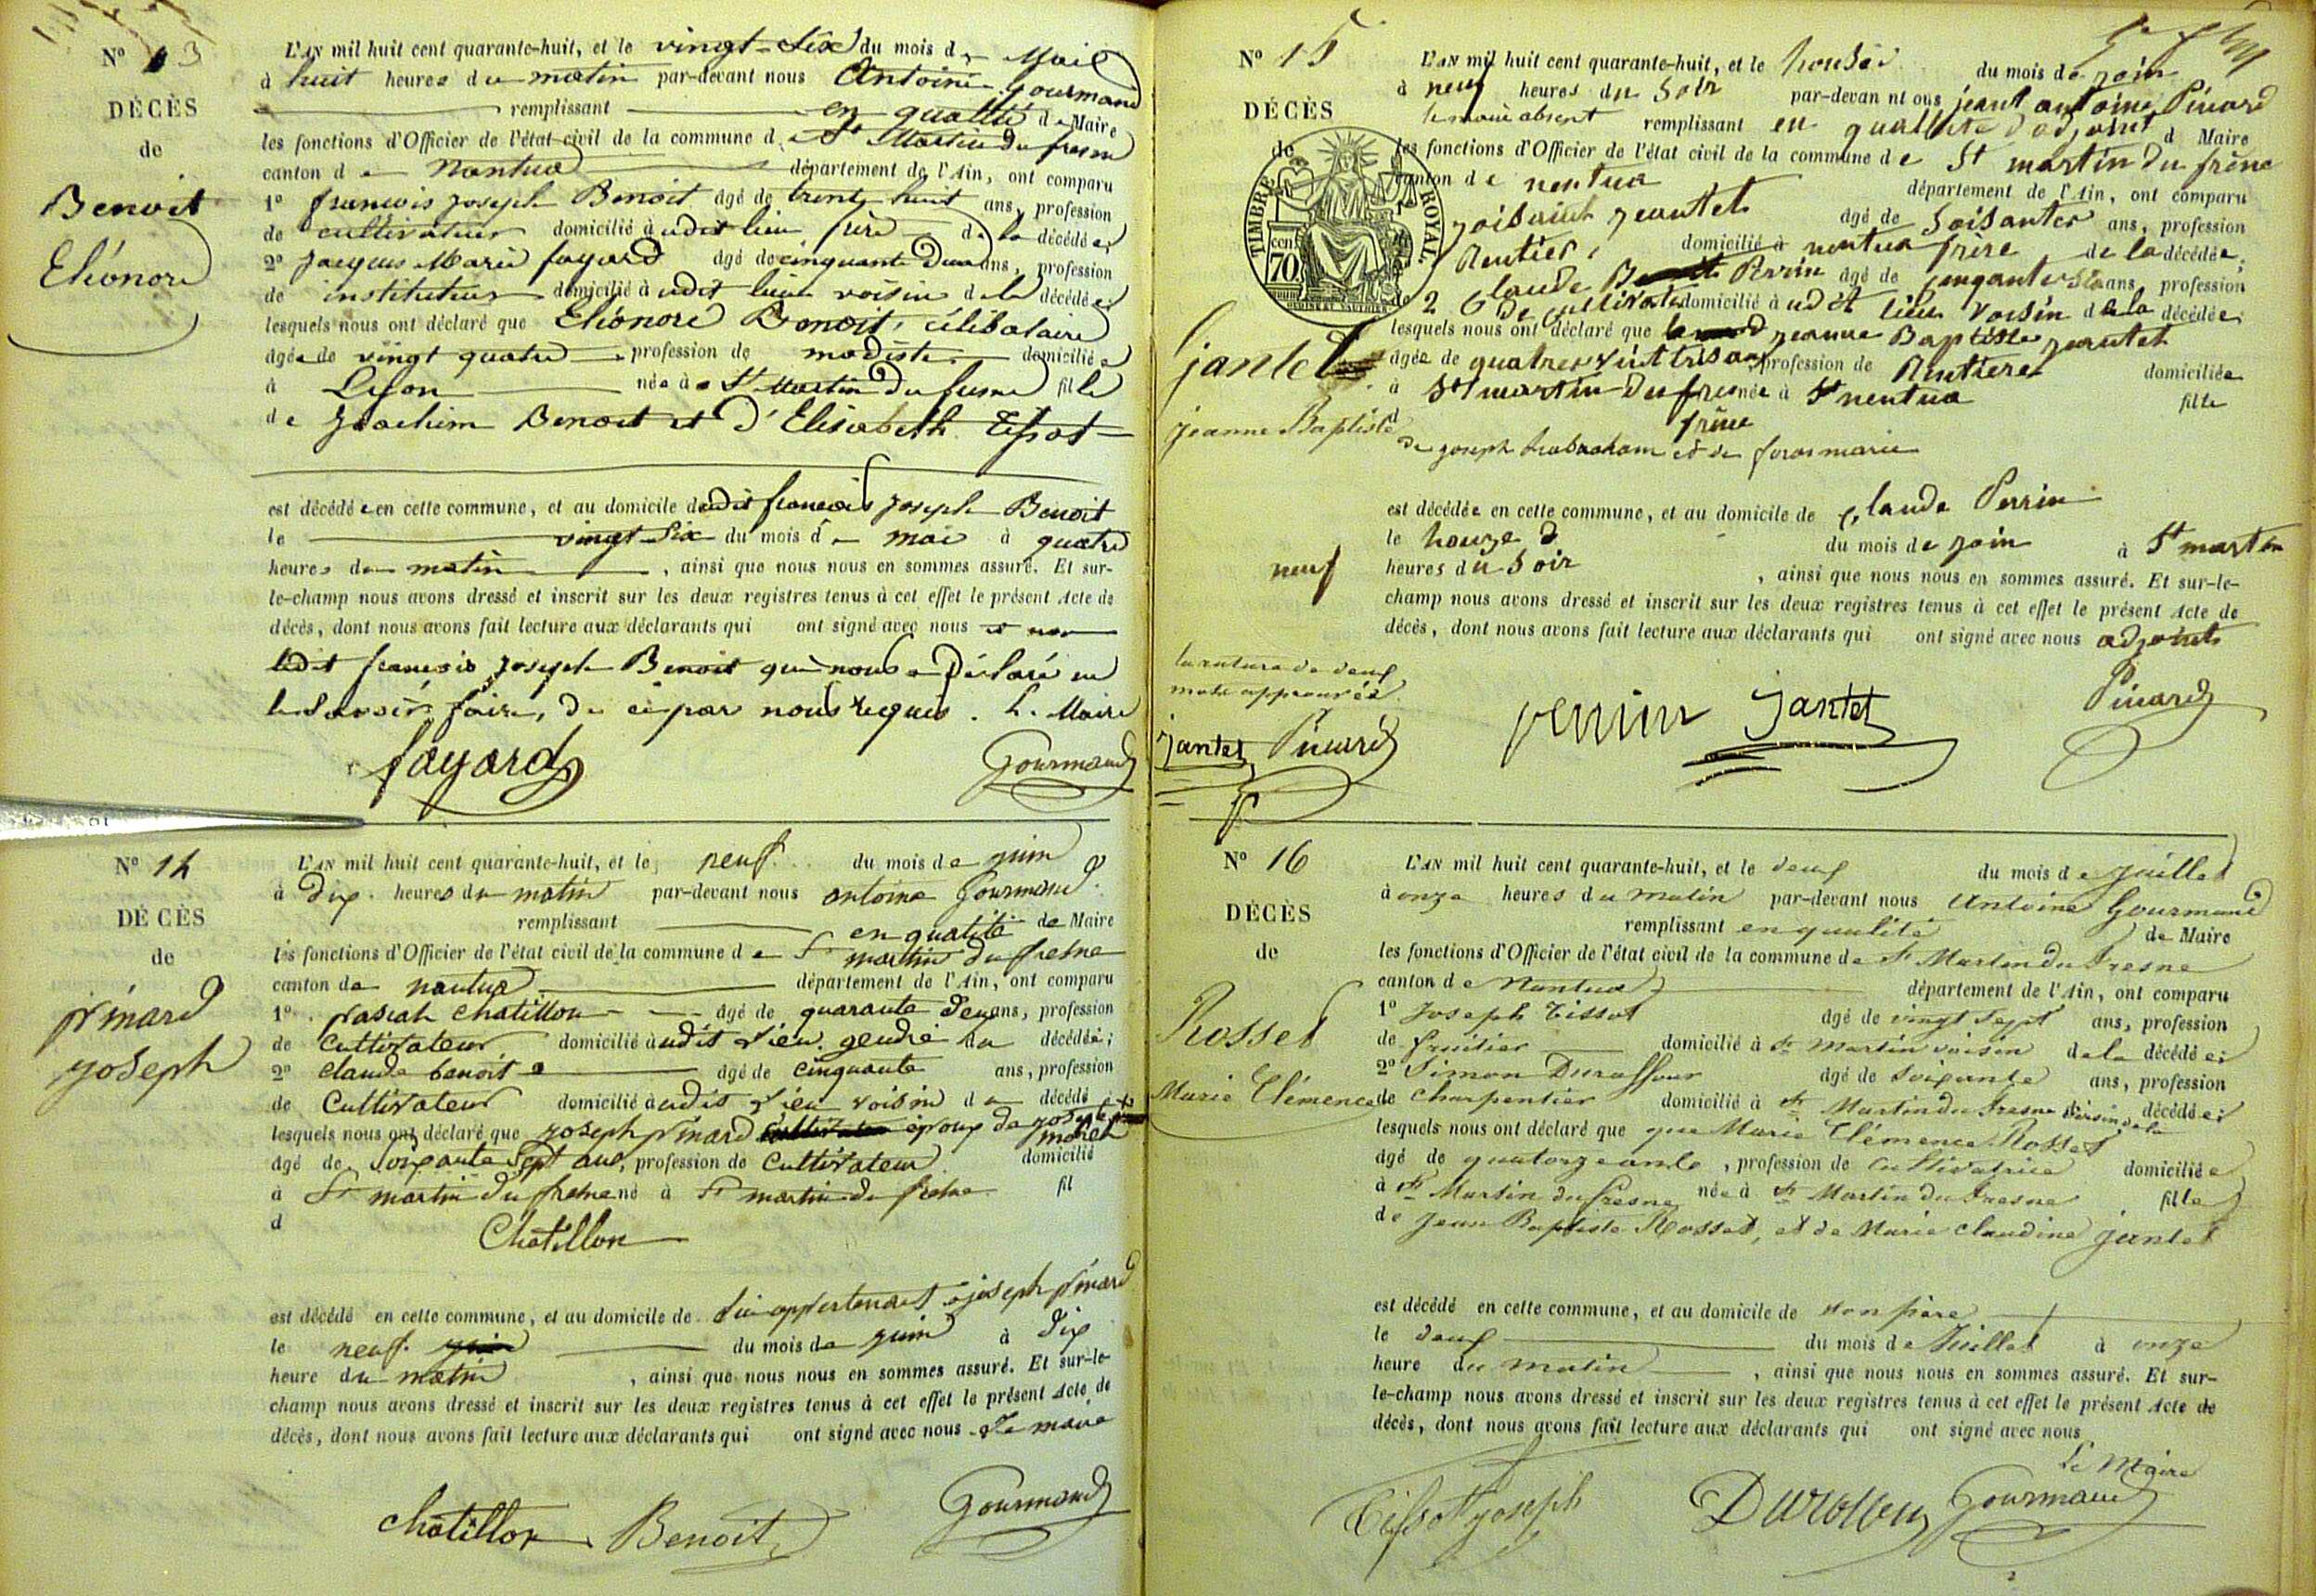 N° 13
DÉCÈS
de
Benoit
Eléonore
L'AN mil huit cent quarante-huit, et le vingt-six du mois de Mai
à huit heures du matin par-devant nous Antoine Gourmand
remplissant en qualité de Maire
les fonctions d'Officier de l'état civil de la commune de St Martin du fresne
canton de Nantua département de l'Ain, ont comparu
1° françois joseph Benoit âgé de trente huit ans, profession
de cultivateur domicilié à udit lieu frère de la décédée;
2° Jacques Marie fayard âgé de cinquante deux ans, profession
de instituteur domicilié à udit lieu voisin de la décédée;
lesquels nous ont déclaré que Eléonore Benoit, célibataire
âgée de vingt quatre profession de modiste domiciliée
à Lyon née à St Martin du fresne fille
de Joachim Benoit et d'Elisabeth Tissot
est décédée en cette commune, et au domicile dudit françois joseph Benoit
le vingt-six du mois de mai à quatre
heures du matin, ainsi que nous nous en sommes assuré. Et sur-
le-champ nous avons dressé et inscrit sur les deux registres tenus à cet effet le présent Acte de
décès, dont nous avons fait lecture aux déclarants qui ont signé avec nous et non
ledit françois joseph Benoit qui nous a déclaré ne
le savoir faire, de ce par nous requis. Le Maire
fayard Gourmand
N° 14
DÉCÈS
de
pinard
joseph
L'AN mil huit cent quarante-huit, et le neuf du mois de juin
à dix heures du matin par-devant nous antoine Gourmand
remplissant en qualité de Maire
les fonctions d'Officier de l'état civil de la commune de St martin du fresne
canton de nantua département de l'Ain, ont comparu
1° pascal chatillon âgé de quarante deux ans, profession
de cultivateur domicilié à udit lieu gendre du décédé;
2° claude benoit âgé de cinquante ans, profession
de cultivateur domicilié à udit lieu voisin du décédé
lesquels nous ont déclaré que joseph pinard époux de josephte morel
âgé de soixante sept ans, profession de cultivateur domicilié
à St martin du fresne né à St martin du fresne fil
d
Chatillon
est décédé en cette commune, et au domicile de lui appartenant a joseph pinard
le neuf du mois de juin à dix
heure du matin, ainsi que nous nous en sommes assuré. Et sur-le-
champ nous avons dressé et inscrit sur les deux registres tenus à cet effet le présent Acte de
décès, dont nous avons fait lecture aux déclarants qui ont signé avec nous Le maire
chatillon Benoit Gourmand
N° 15
DÉCÈS
de
TIMBRE ROYAL
70 cen
jantet
jeanne Baptiste
L'AN mil huit cent quarante-huit, et le houze du mois de join
à neuf heures du soir par-devant nous jeant antoine Pinard
le maire absent remplissant en quallité d'adjoint d Maire
les fonctions d'Officier de l'état civil de la commune de St martin du frêne
canton de nentua département de l'Ain, ont comparu
jeantet âgé de soisante ans, profession
Rentier domicilié à nentua frère de la décédée;
2 Claude Perrin âgé de ans, profession
de cultivate domicilié à udit lieu voisin de la décédée;
lesquels nous ont déclaré que jeanne Baptiste jeantet
âgée de quatre vint trisans profession de Rentiere domiciliée
à St martin du frene née à nentua fille
d frêne
de joseph habraham et de foras marie
est décédée en cette commune, et au domicile de claude Perrin
le houze d du mois de join à St martin
neuf heures du soir, ainsi que nous nous en sommes assuré. Et sur-le-
champ nous avons dressé et inscrit sur les deux registres tenus à cet effet le présent Acte de
décès, dont nous avons fait lecture aux déclarants qui ont signé avec nous adjoint
la rature de deux
mots approuvée
jantet Pinard
perrin jantet Pinard
N° 16
DÉCÈS
de
Rosset
Marie Clémence
L'AN mil huit cent quarante-huit, et le deux du mois de juillet
à onze heures du matin par-devant nous Antoine Gourmand
remplissant en qualité de Maire
les fonctions d'Officier de l'état civil de la commune de St Martin du fresne
canton de Nantua département de l'Ain, ont comparu
1° Joseph Tissot âgé de vingt sept ans, profession
de fruitier domicilié à St Martin voisin de la décédée;
2° Simon Duraffour âgé de soixante ans, profession
de charpentier domicilié à St Martin du fresne voisin de la décédée;
lesquels nous ont déclaré que que Marie Clémence Rosset
âgé de quatorze ans, profession de cultivatrice domiciliée
à St Martin du fresne née à St Martin du fresne fille
de jean Baptiste Rosset, et de Marie claudine jantet
est décédé en cette commune, et au domicile de son père
le deux du mois de Juillet à onze
heure du matin, ainsi que nous nous en sommes assuré. Et sur-
le-champ nous avons dressé et inscrit sur les deux registres tenus à cet effet le présent Acte de
décès, dont nous avons fait lecture aux déclarants qui ont signé avec nous
Le Maire
Tissot joseph Gourmand